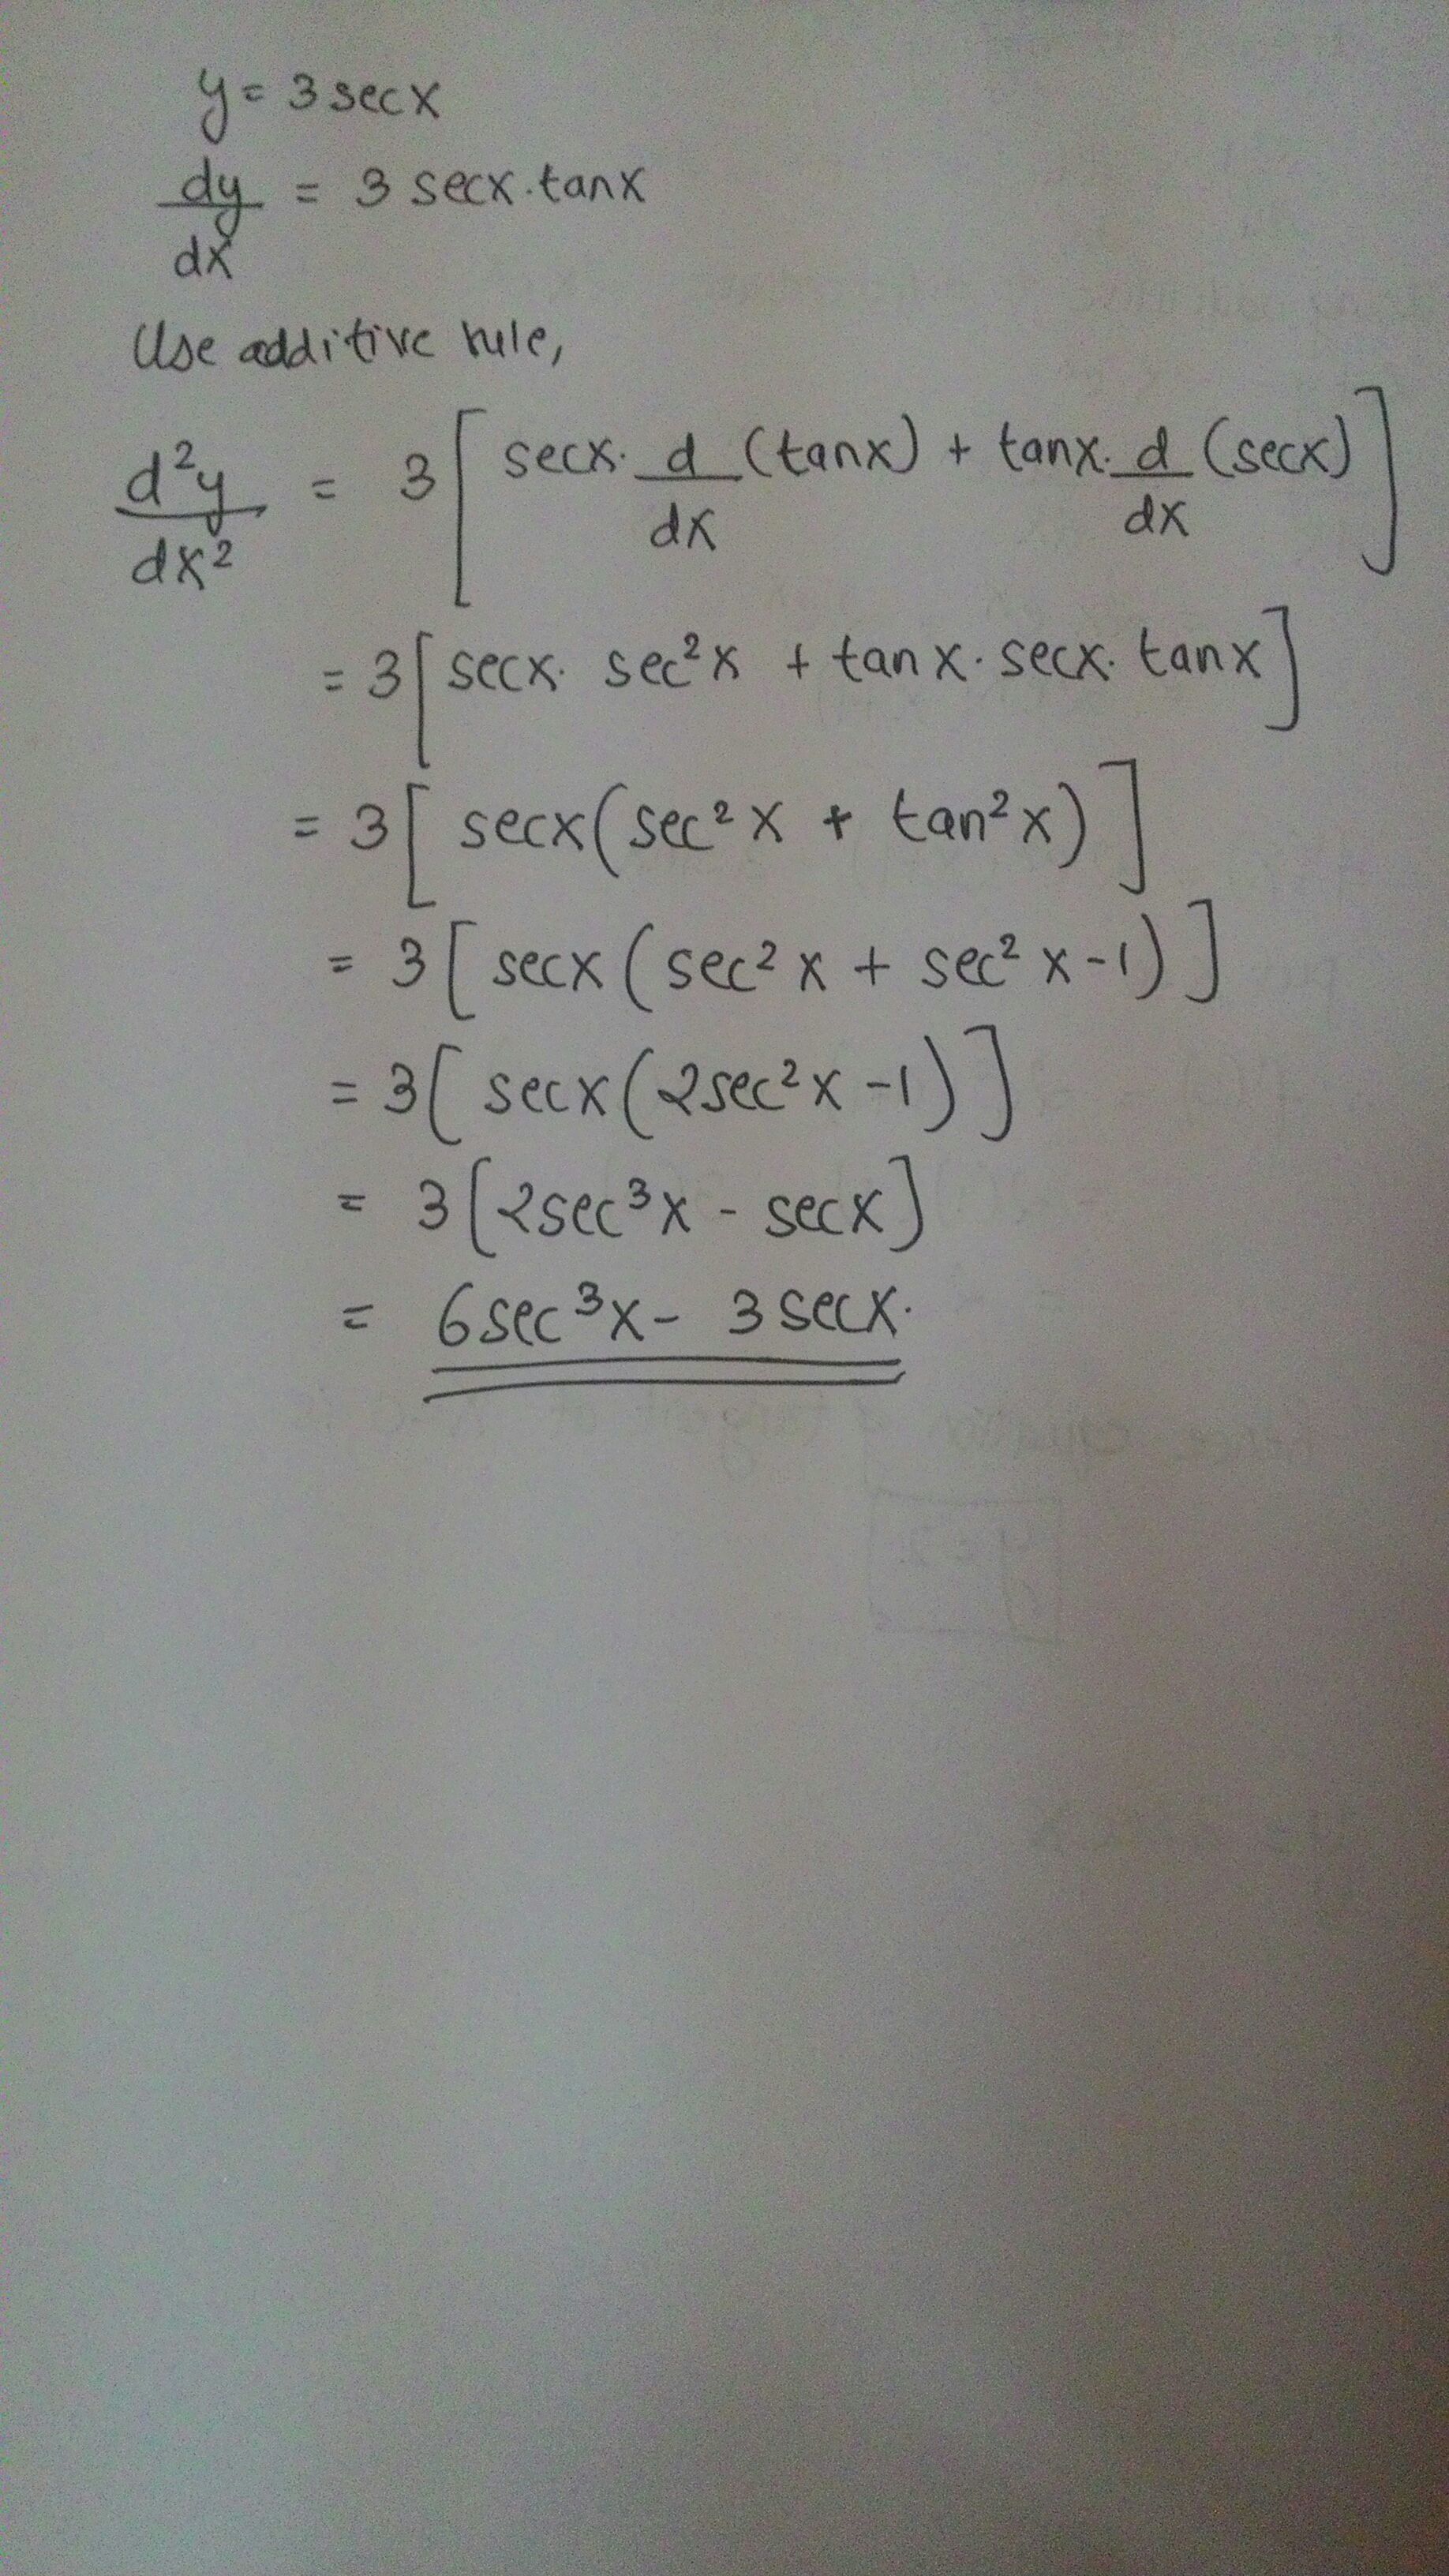 y = 3 sec x
dy/dx = 3 sec x · tan x
Use additive rule,
d²y/dx² = 3 [ sec x · d/dx (tan x) + tan x · d/dx (sec x) ]
= 3 [ sec x · sec² x + tan x · sec x · tan x ]
= 3 [ sec x ( sec² x + tan² x ) ]
= 3 [ sec x ( sec² x + sec² x - 1 ) ]
= 3 [ sec x ( 2 sec² x - 1 ) ]
= 3 [ 2 sec³ x - sec x ]
= 6 sec³ x - 3 sec x.